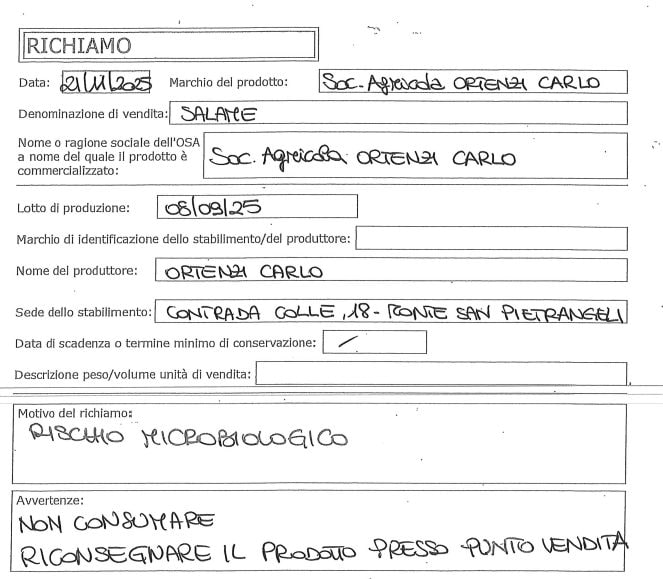 RICHIAMO
Data: 21/11/2025 Marchio del prodotto: Soc. Agricola ORTENZI CARLO
Denominazione di vendita: SALAME
Nome o ragione sociale dell'OSA
a nome del quale il prodotto è
commercializzato: Soc. Agricola ORTENZI CARLO
Lotto di produzione: 08/09/25
Marchio di identificazione dello stabilimento/del produttore:
Nome del produttore: ORTENZI CARLO
Sede dello stabilimento: CONTRADA COLLE, 18 - MONTE SAN PIETRANGELI
Data di scadenza o termine minimo di conservazione: /
Descrizione peso/volume unità di vendita:
Motivo del richiamo:
RISCHIO MICROBIOLOGICO
Avvertenze:
NON CONSUMARE
RICONSEGNARE IL PRODOTTO PRESSO PUNTO VENDITA